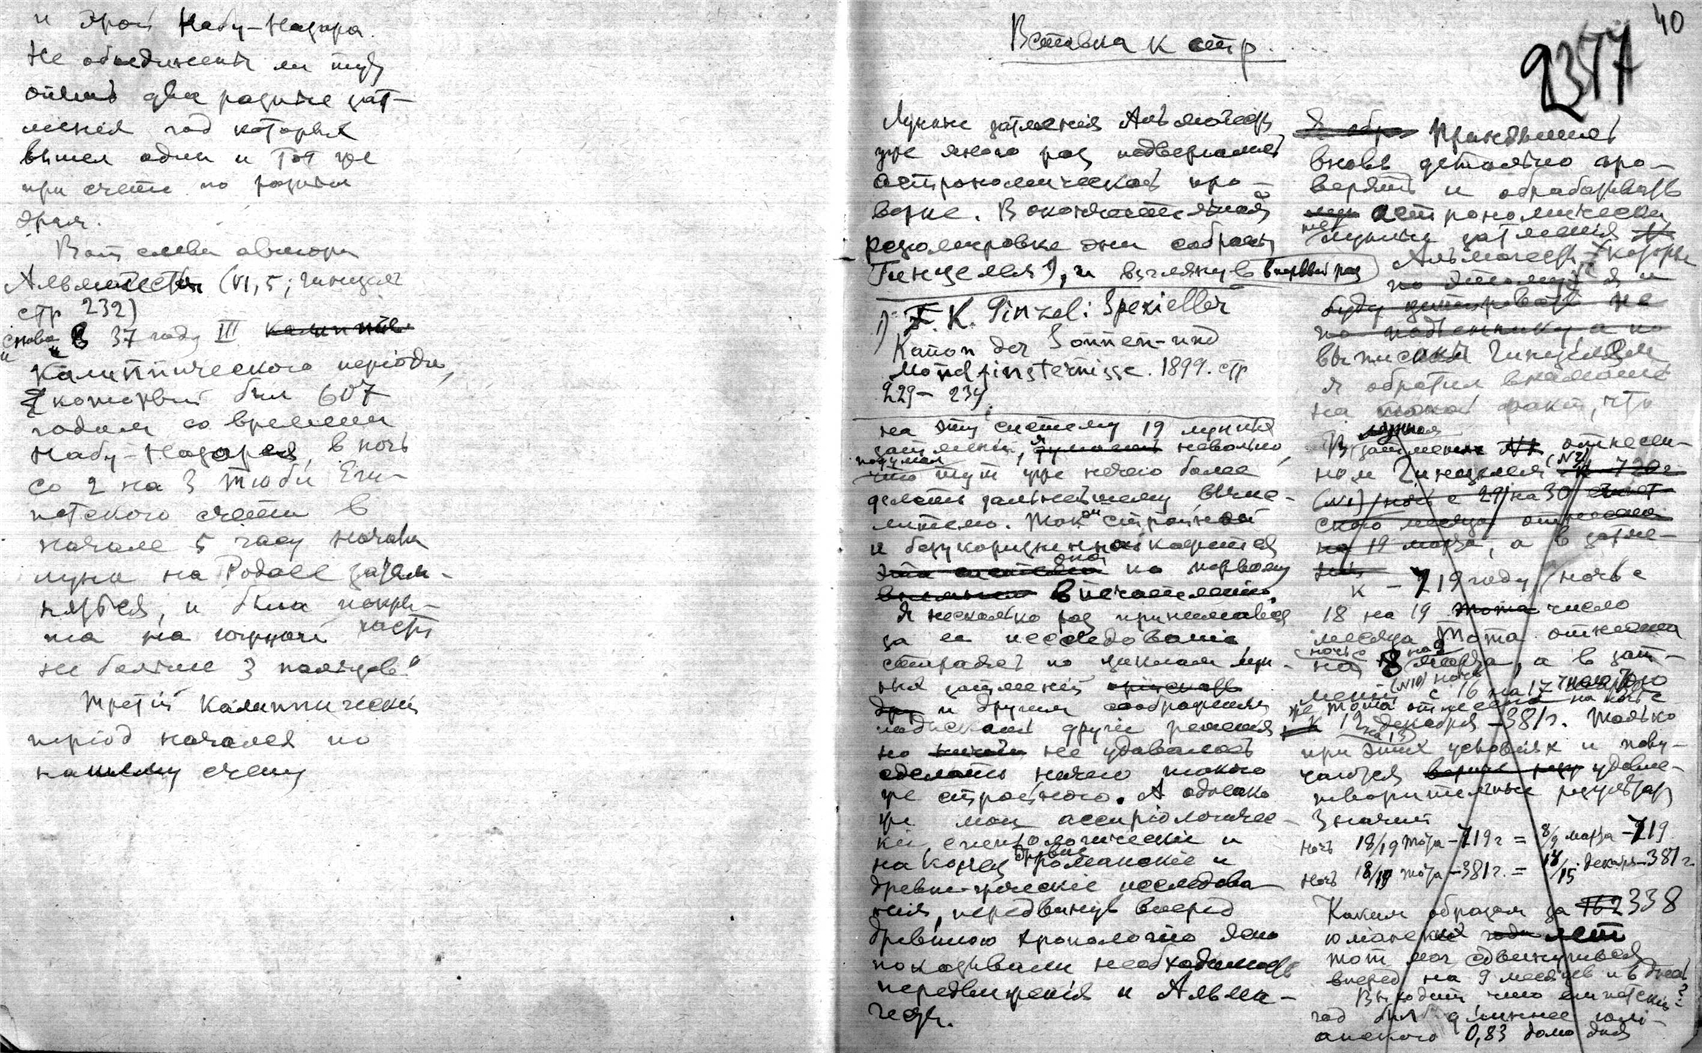 и эрой Набу-Назара.
Не объединены ли тут
опять два разные зат-
менiя год которых
вышел один и тот же
при счете по разным
эрам.
Вот слова автора
Альмагеста (VI, 5; Гинцель
стр 232)
"снова в 37 году III
Калиппического перiода,
который был 607
годом со времени
Набу-Назара, в ночь
со 2 на 3 Тюби Еги-
петского счета в
начале 5 часу начала
луна на Родосе затем-
няться, и была покры-
та на южной части
не более 3 пальцев"
Третiй Калиппическiй
перiод начался по
нашему счету
Вставка к стр.
40
2377
Лунные затменiя Альмагеста
уже много раз подвергались
астрономической про-
верке. В окончательной
редактировке они собраны
Гинцелем 1), и взглянув в первый раз
1) F. K. Ginzel: Spezieller
Kanon der Sonnen- und
Mondfinsternisse. 1899. стр
229-234.
на эту систему 19 лунных
затменiй, невольно
подумал
что тут уже нечего более
делать дальнейшему вычис-
лителю. Такой стройной
и безукоризненной кажется
она по первому
впечатленiю.
Я несколько раз принимался
за ее исследованiе
стараясь по циклам лун-
ных затменiй
и другим соображенiям
подыскать другiе решенiя
но не удавалось
сделать ничего такого
же стройного. А однако
же мои ассирiологичес-
кiе, египтологическiе и
на конец древне романскiе и
древне-греческiе исследова-
нiя, передвинув вперед
древнюю хронологiю ясно
показывали необходимость
передвиженiя и Альма-
геста.
Принявшись
вновь детально про-
верять и обрабатывать
астрономически
лунные затменiя
Альмагеста, которые
по
буду цитировать не
по подленнику а по
выпискам Гинцеля
я обратил вниманiе
на такой факт, что
В затменiи отнесен-
ном Гинцелем (№2)
(№1) ночь с 29 на 30
на 19 марта, а в затме-
к -719 году ночь с
18 на 19 число
месяца Тота отнесена
на 8 марта, а в зат-
менiи (№10) ночь с 16 на 17
же Тота отнесена на ночь с
12 на 13 декабря -381 г. Только
при этих условiях и полу-
чаются удовле-
творительные результаты
Значит
ночь 18/19 Тота -719 г = 8/9 марта -719
ночь 18/19 Тота -381 г. = 14/15 декабря -381 г.
Каким образом за 338
юлiанских лет
тот мог сдвинуться
вперед на 9 месяцев и 6 дней?
Выходит, что египетскiй
год был длиннее юлi-
анского 0,83 долю дня